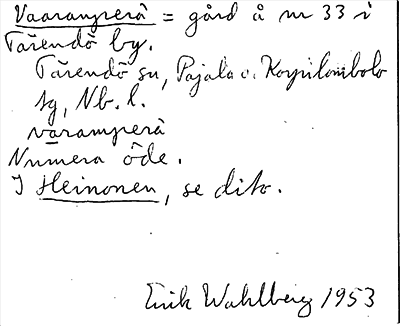 Vaaranperä = gård å nr 33 i
Tärendö by.
Tärendö sn, Pajala o. Korpilombolo
tg, Nb. l.
vāranperä
Numera öde.
I Heinonen, se dito.
Erik Wahlberg 1953